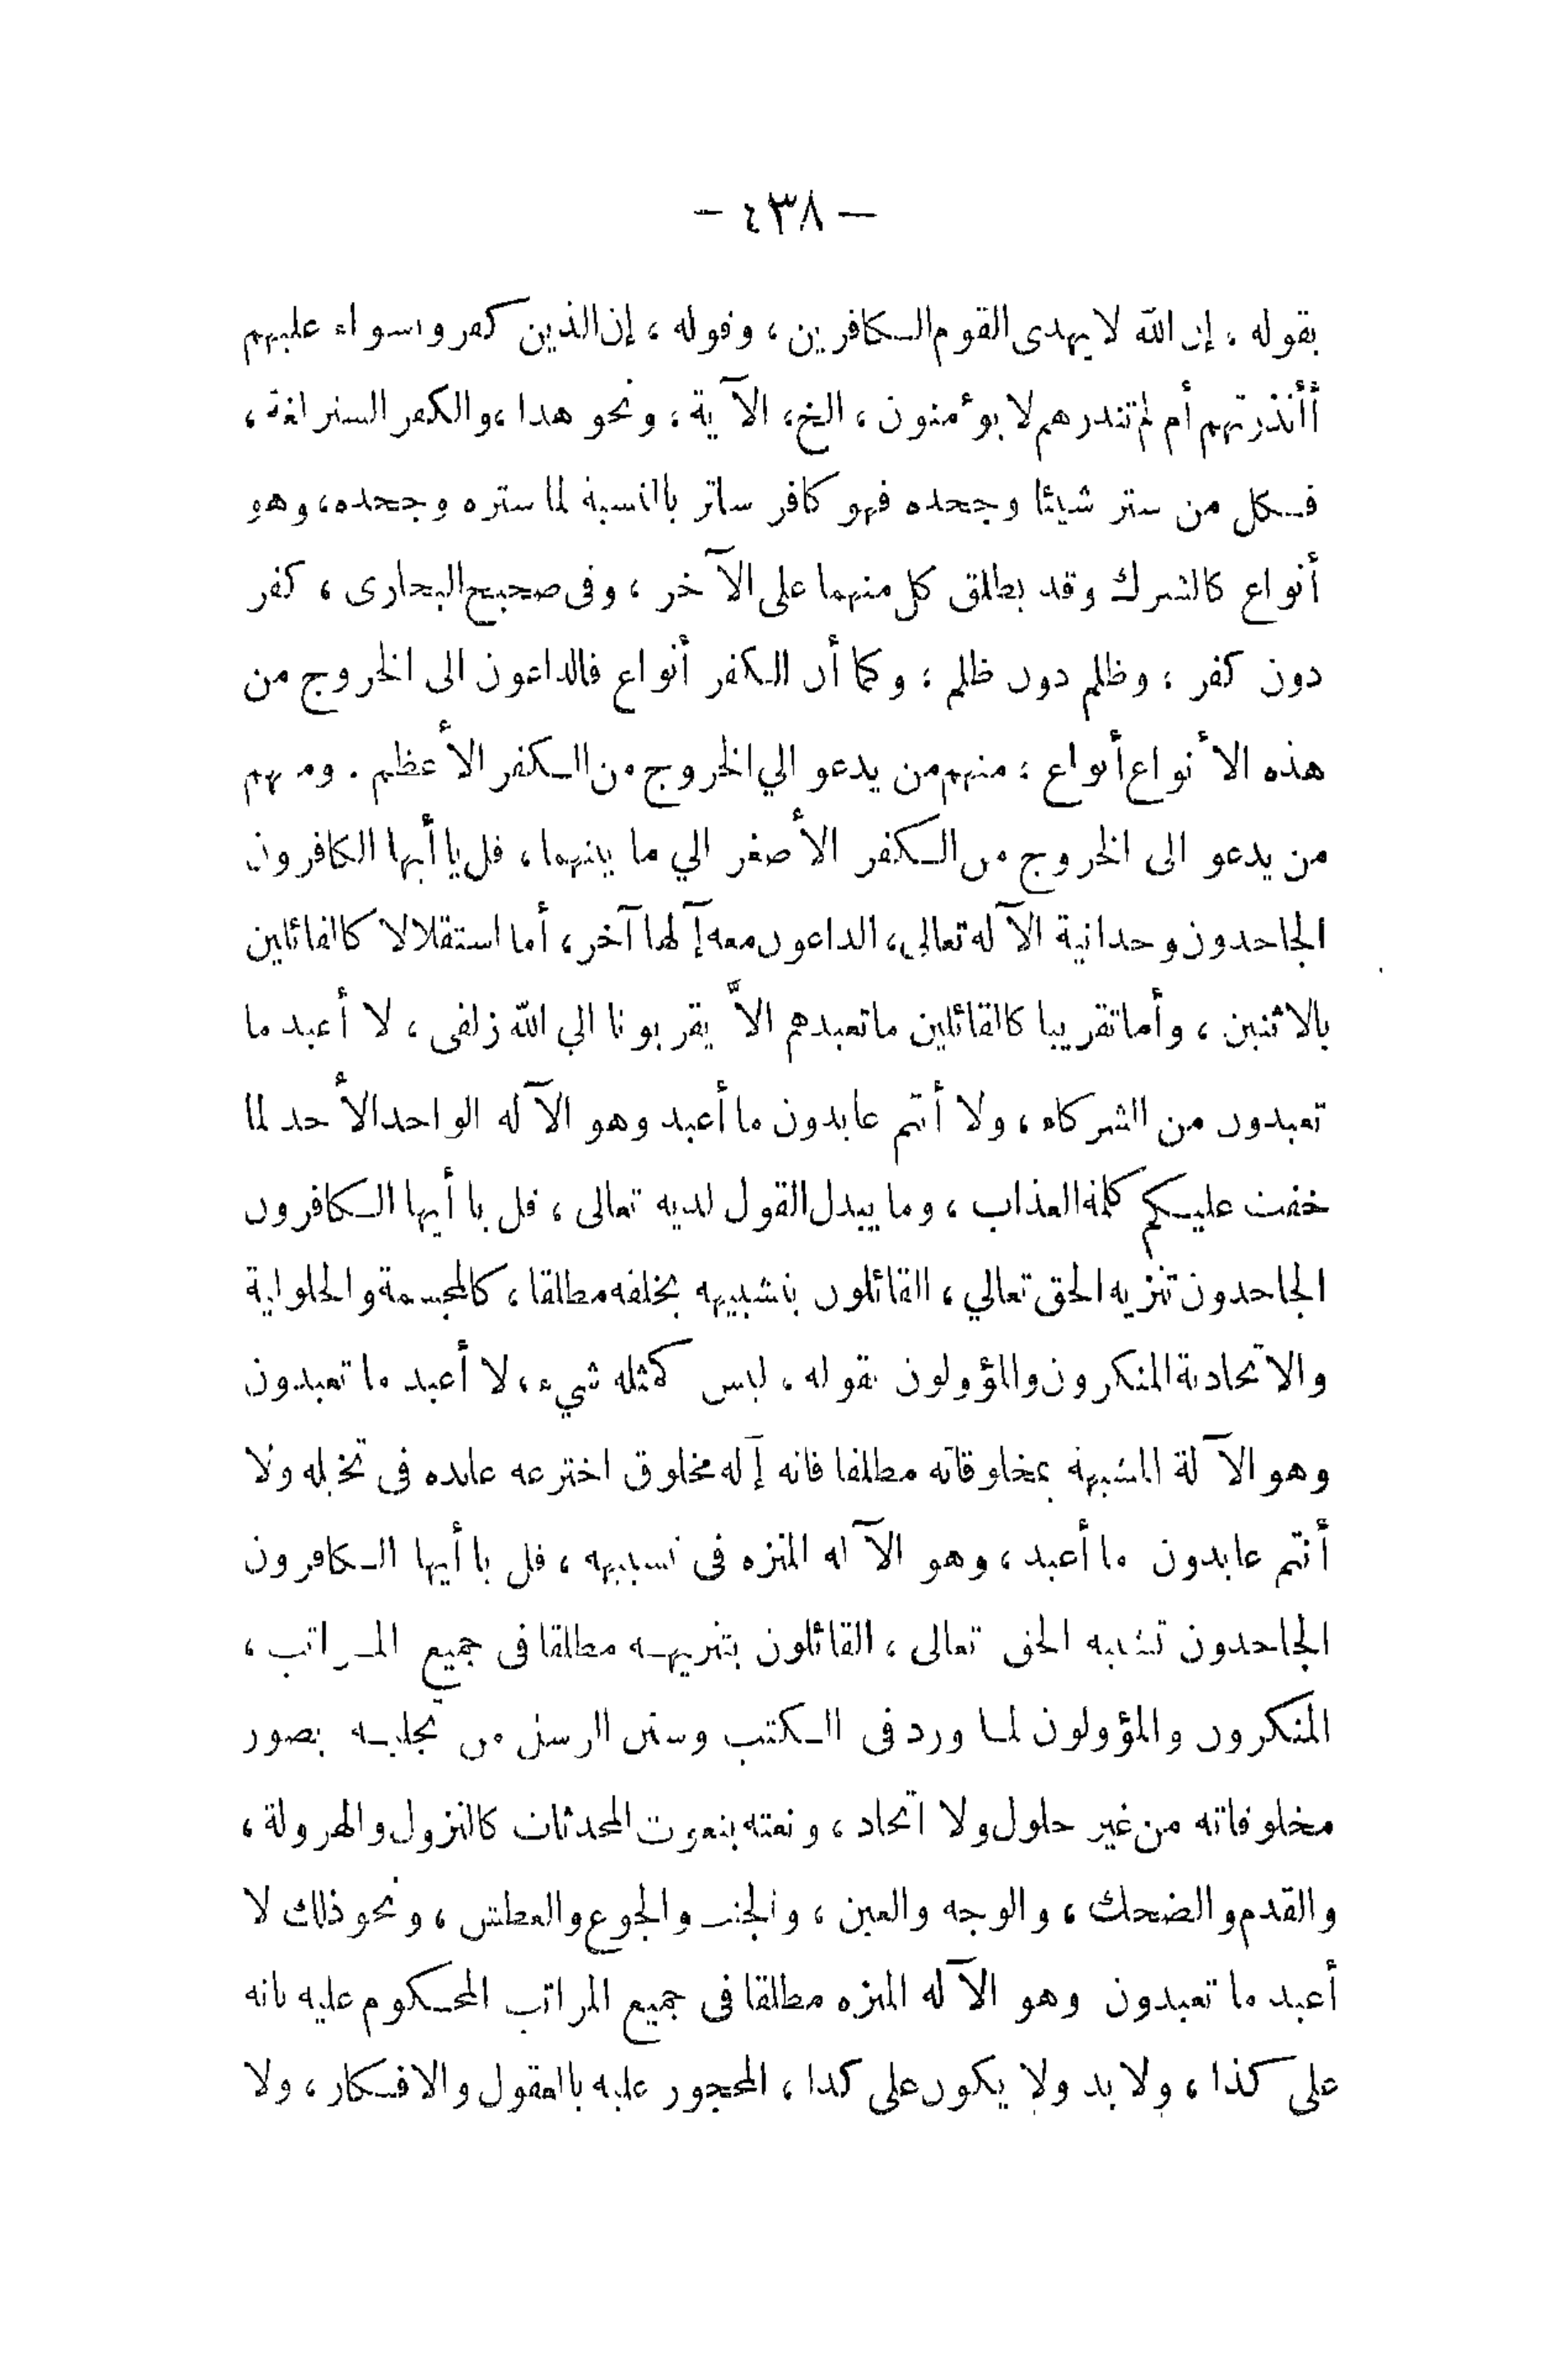 — ٤٣٨ —
بقوله ، إن الله لا يهدى القوم الكافرين ، وقوله ، إن الذين كفروا سواء عليهم
أأنذرتهم أم لم تنذرهم لا يوءمنون ، الخ، الآية ، ونحو هذا ، والكفر الستر لغة ،
فكل من ستر شيئا وجحده فهو كافر ساتر بالنسبة لما ستره وجحده، وهو
أنواع كالشرك وقد يطلق كل منهما على الآخر ، وفى صحيح البخارى ، كفر
دون كفر ، وظلم دون ظلم ، وكما أن الكفر أنواع فالداعون الى الخروج من
هذه الأنواع أنواع : منهم من يدعو الي الخروج من الكفر الأعظم . ومنهم
من يدعو الى الخروج من الكفر الأصغر الي ما بينهما ، قل يا أيها الكافرون
الجاحدون وحدانية الآله تعالى، الداعون معه إآلها آخر ، أما استقلالا كالقائلين
بالاثنين ، وأما تقريبا كالقائلين ماتعبدهم الاَّ يقربونا الي الله زلفى ، لا أعبد ما
تعبدون من الشركاء ، ولا أنتم عابدون ما أعبد وهو الآله الواحد الأحد لما
حقت عليكم كلمة العذاب ، وما يبدل القول لديه تعالى ، قل يا أيها الكافرون
الجاحدون تنزيه الحق تعالي ، القائلون بتشبيهه بخلقه مطلقا ، كالمجسمة والحلولية
والاتحادية المنكرون والمؤولون بقوله ، ليس كمثله شيء ، لا أعبد ما تعبدون
وهو الآلة المشبهة بمخلوقاته مطلقا فانه إآله مخلوق اخترعه عابده فى تخيله ولا
أنتم عابدون ما أعبد ، وهو الآله المنزه فى تشبيهه ، قل يا أيها الكافرون
الجاحدون تشبيه الحق تعالى ، القائلون بتنزيهه مطلقا فى جميع المراتب ،
المنكرون والمؤولون لما ورد فى الكتب وسنن الرسل من تجليه بصور
مخلوقاته من غير حلول ولا اتحاد ، ونعته بنعوت المحدثات كالنزول والهرولة ،
والقدم والضحك ، والوجه والعين ، والجنب والجوع والعطش ، ونحو ذلك لا
أعبد ما تعبدون وهو الآله المنزه مطلقا فى جميع المراتب المحكوم عليه بانه
على كذا ، ولا بد ولا يكون على كذا ، المحجور عليه بالعقول والافكار ، ولا